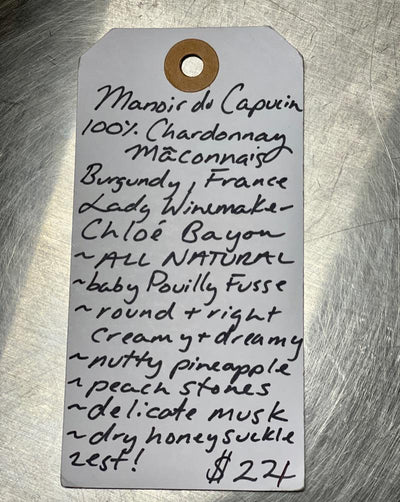 Manoir du Capucin
100% Chardonnay
Mâconnais
Burgundy, France
Lady Winemaker-
Chloé Bayon
~ALL NATURAL
~baby Pouilly Fusse
~round + right
creamy + dreamy
~nutty pineapple
~peach stones
~delicate musk
~dry honeysuckle
zest! $24